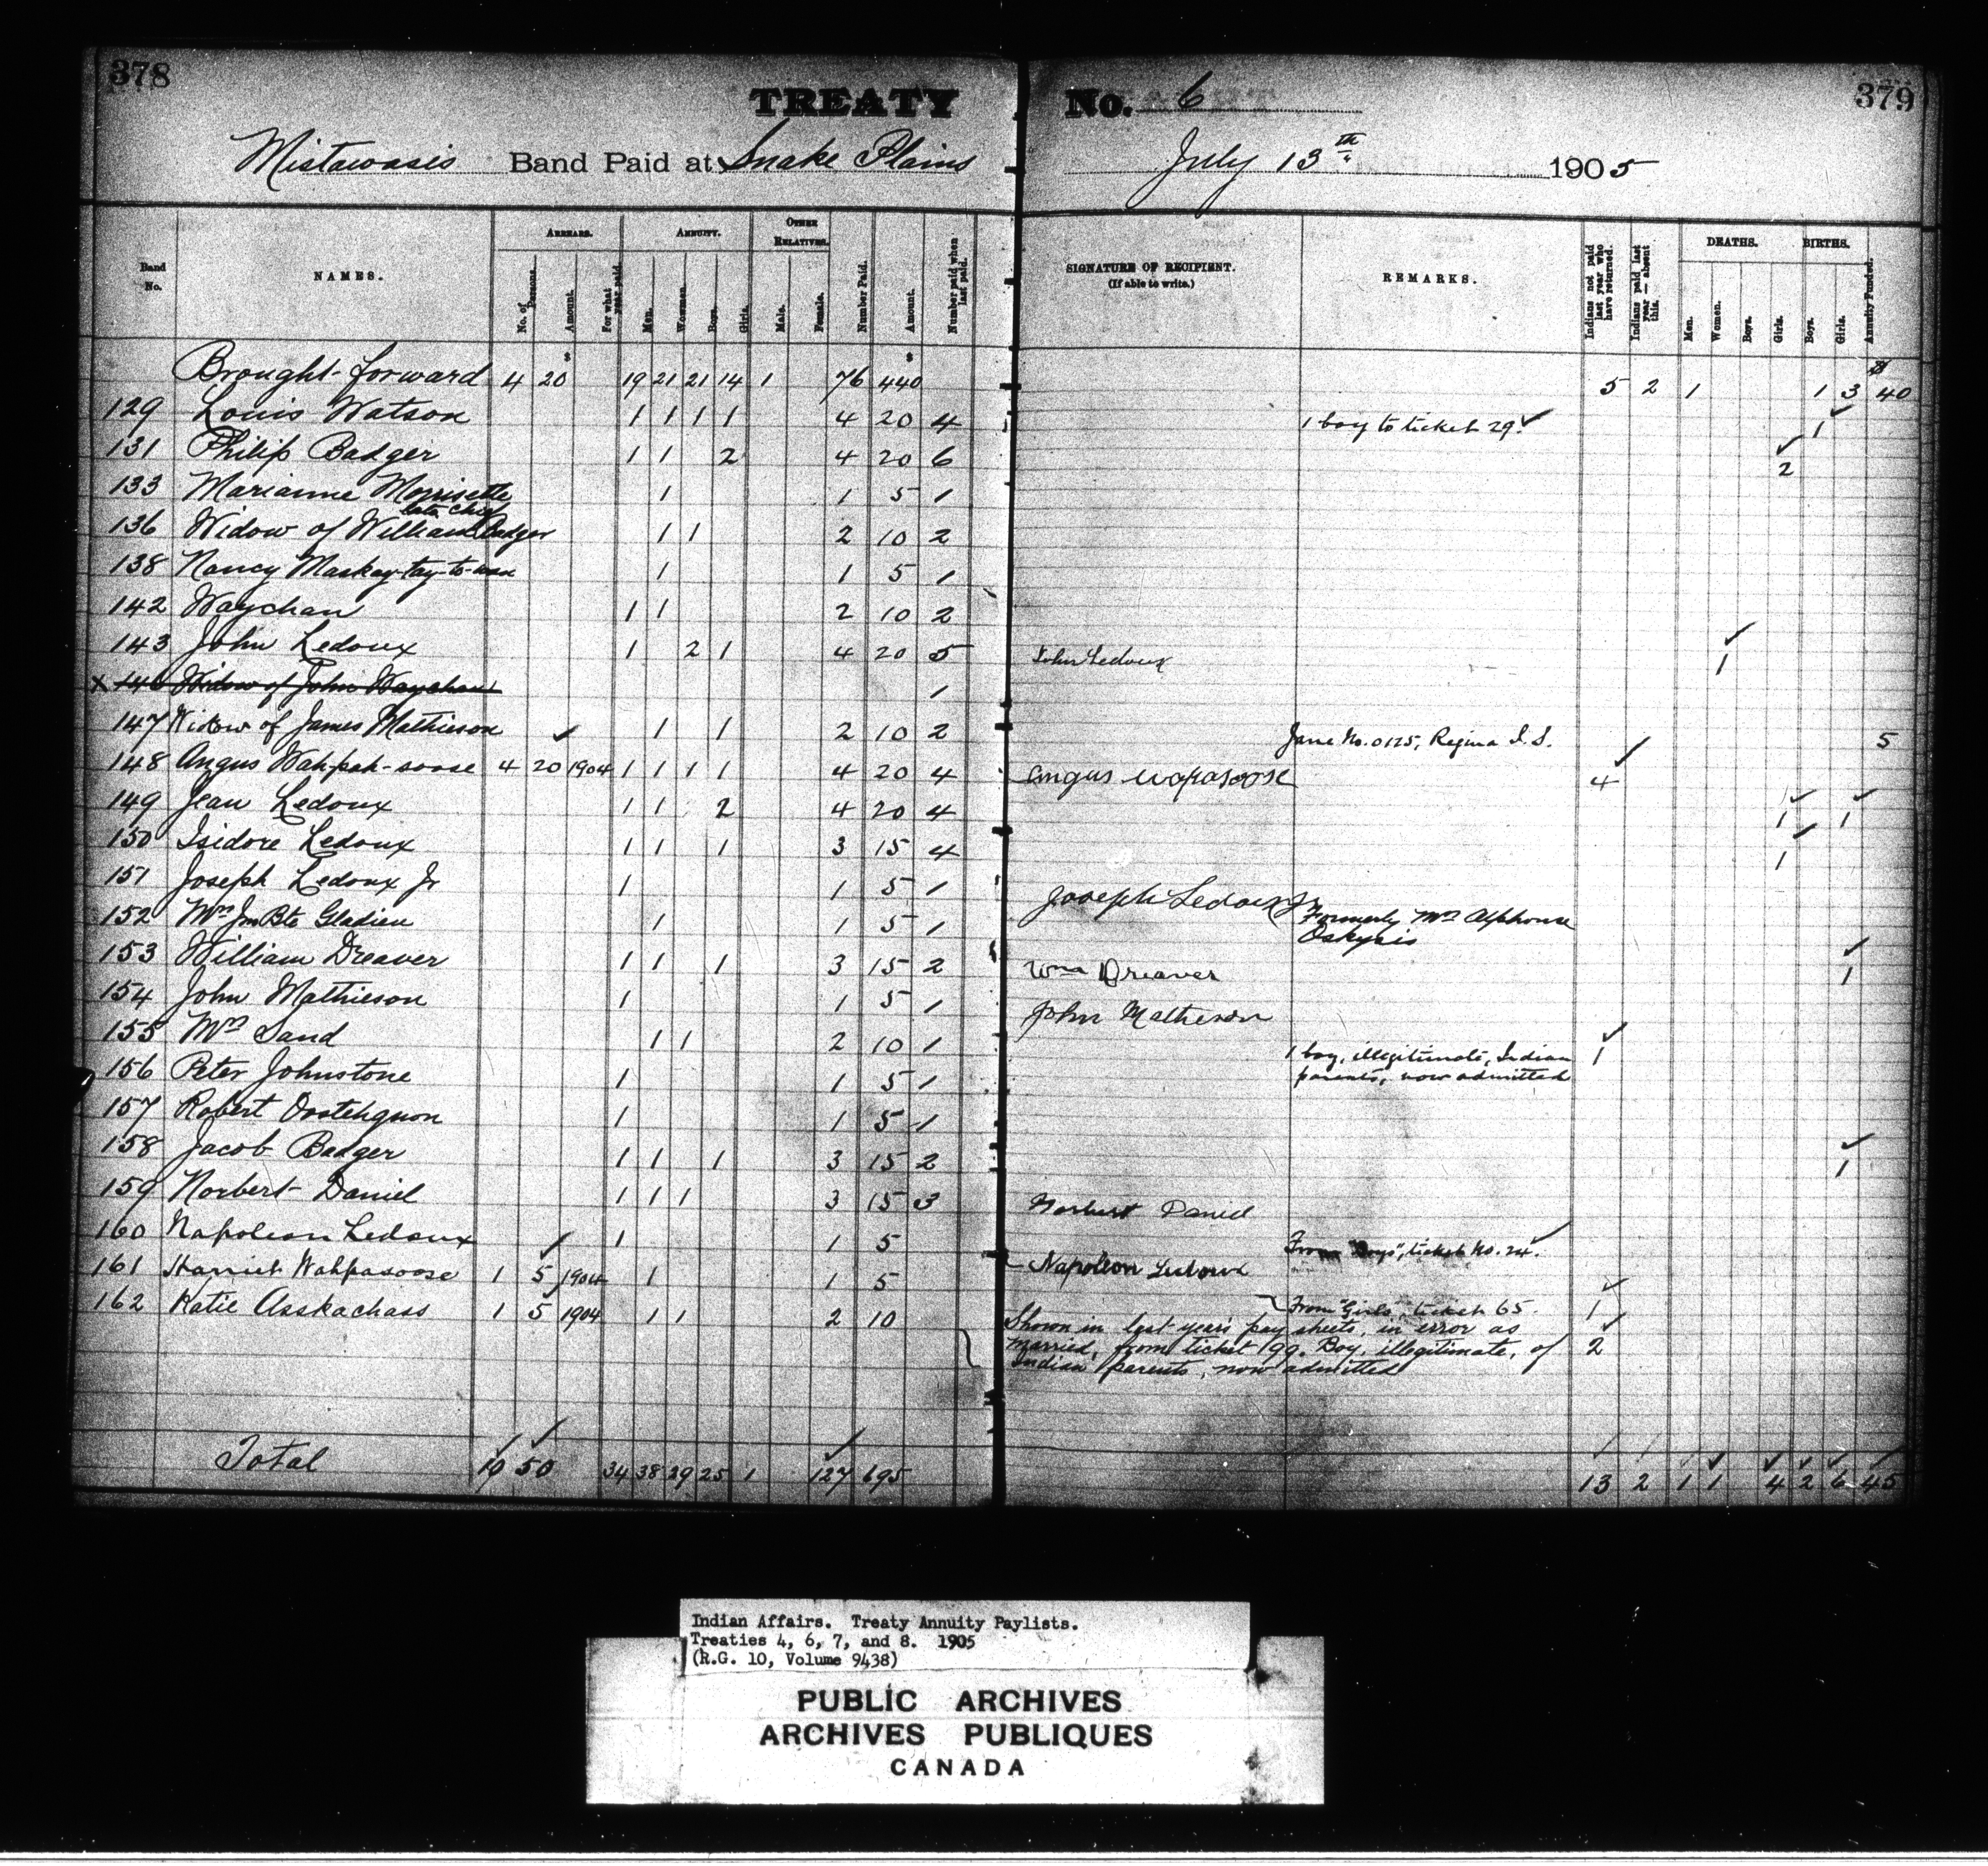 378
TREATY No. 6
379
Mistawasis Band Paid at Snake Plains July 13th 1905
Band No.
NAMES.
ARREARS.
No. of Persons.
Amount.
For what year paid.
ANNUITY.
Men.
Women.
Boys.
Girls.
OTHER RELATIVES.
Male.
Female.
Number Paid.
Amount.
Number paid when last paid.
SIGNATURE OF RECIPIENT.
(If able to write.)
REMARKS.
Indians not paid last year who have returned.
Indians paid last year — absent this.
DEATHS.
Men.
Women.
Boys.
Girls.
BIRTHS.
Boys.
Girls.
Annuity Funded.
$ $ $
Brought forward 4 20 19 21 21 14 1 76 440 5 2 1 1 3 40
129 Louis Watson 1 1 1 1 4 20 4 1 boy to ticket 29. ✓ 1
131 Philip Badger 1 1 2 4 20 6 2
133 Marianne Morrisette 1 1 5 1
late Chief
136 Widow of William Badger 1 1 2 10 2
138 Nancy Maskay-tay-to-wan 1 1 5 1
142 Waychan 1 1 2 10 2
143 John Ledoux 1 2 1 4 20 5 John Ledoux 1
x 146 Widow of John Waychan 1
147 Widow of James Mathieson 1 1 2 10 2 Jane No. 0125, Regina I. S. 5
148 Angus Wah-pah-soose 4 20 1904 1 1 1 1 4 20 4 angus wapasoose 4
149 Jean Ledoux 1 1 2 4 20 4 1 1
150 Isidore Ledoux 1 1 1 3 15 4 1
151 Joseph Ledoux Jr 1 1 5 1 Joseph Ledoux Jr
152 Mrs Jn Bte Gladieu 1 1 5 1 Formerly Mrs Alphonse
Oskysis
153 William Dreaver 1 1 1 3 15 2 Wm Dreaver 1
154 John Mathieson 1 1 5 1 John Matheson
155 Mrs Sand 1 1 2 10 1 1 boy, illegitimate, Indian 1
parents, now admitted
156 Peter Johnstone 1 1 5 1
157 Robert Oostehquon 1 1 5 1
158 Jacob Badger 1 1 1 3 15 2 1
159 Norbert Daniel 1 1 1 3 15 3 Norbert Daniel
160 Napoleon Ledoux 1 1 5 Napoleon From "Boys", ticket No. 24.
161 Harriet Wahpasoose 1 5 1904 1 1 5 From "Girls", ticket 65. 1
162 Katie Asskachass 1 5 1904 1 1 2 10 Shown in last year's pay sheets, in error as
married, from ticket 99. Boy, illegitimate, of 2
Indian parents, now admitted
Total 10 50 34 38 29 25 1 127 695 13 2 1 1 4 2 6 45
Indian Affairs. Treaty Annuity Paylists.
Treaties 4, 6, 7, and 8. 1905
(R.G. 10, Volume 9438)
PUBLIC ARCHIVES
ARCHIVES PUBLIQUES
CANADA